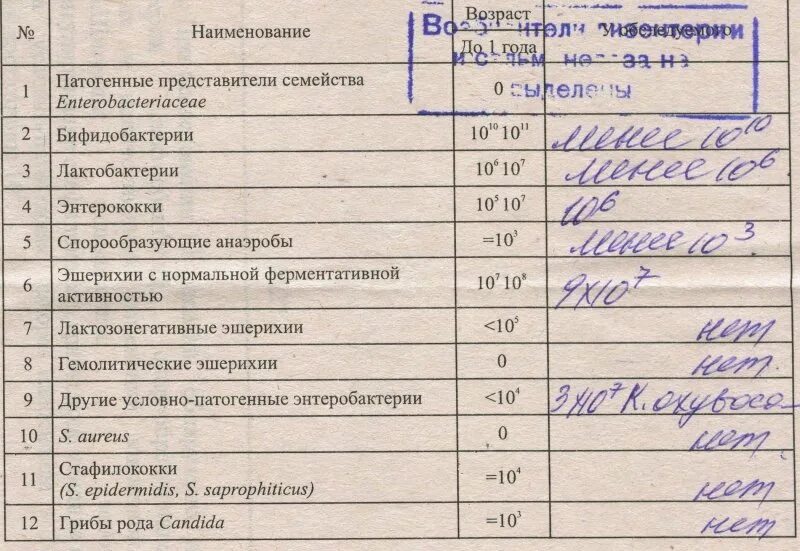 № Наименование Возраст До 1 года У обследуемого
Возбудители дизентерии
и сальмонеллеза не
выделены
1 Патогенные представители семейства Enterobacteriaceae 0
2 Бифидобактерии 10¹⁰ 10¹¹ менее 10¹⁰
3 Лактобактерии 10⁶ 10⁷ менее 10⁶
4 Энтерококки 10⁵ 10⁷ 10⁶
5 Спорообразующие анаэробы =10³ менее 10³
6 Эшерихии с нормальной ферментативной активностью 10⁷ 10⁸ 9х10⁷
7 Лактозонегативные эшерихии <10⁵ нет
8 Гемолитические эшерихии 0 нет
9 Другие условно-патогенные энтеробактерии <10⁴ 3х10⁷ К.
10 S. aureus 0 нет
11 Стафилококки (S. epidermidis, S. saprophiticus) =10⁴ нет
12 Грибы рода Candida =10³ нет